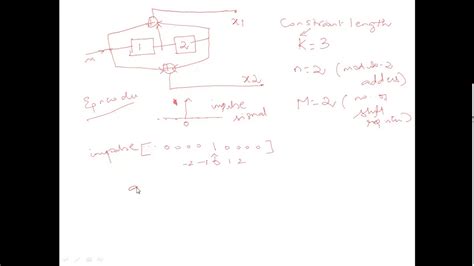 x1
Constraint length
K = 3
1
2
m
n = 2 (modulo-2
adders)
x2
Encoder
impulse
signal
0
M = 2 (no. of
shift
register)
impulse [ - 0 0 0 0 1 0 0 0 0 ]
-2 -1 0 1 2